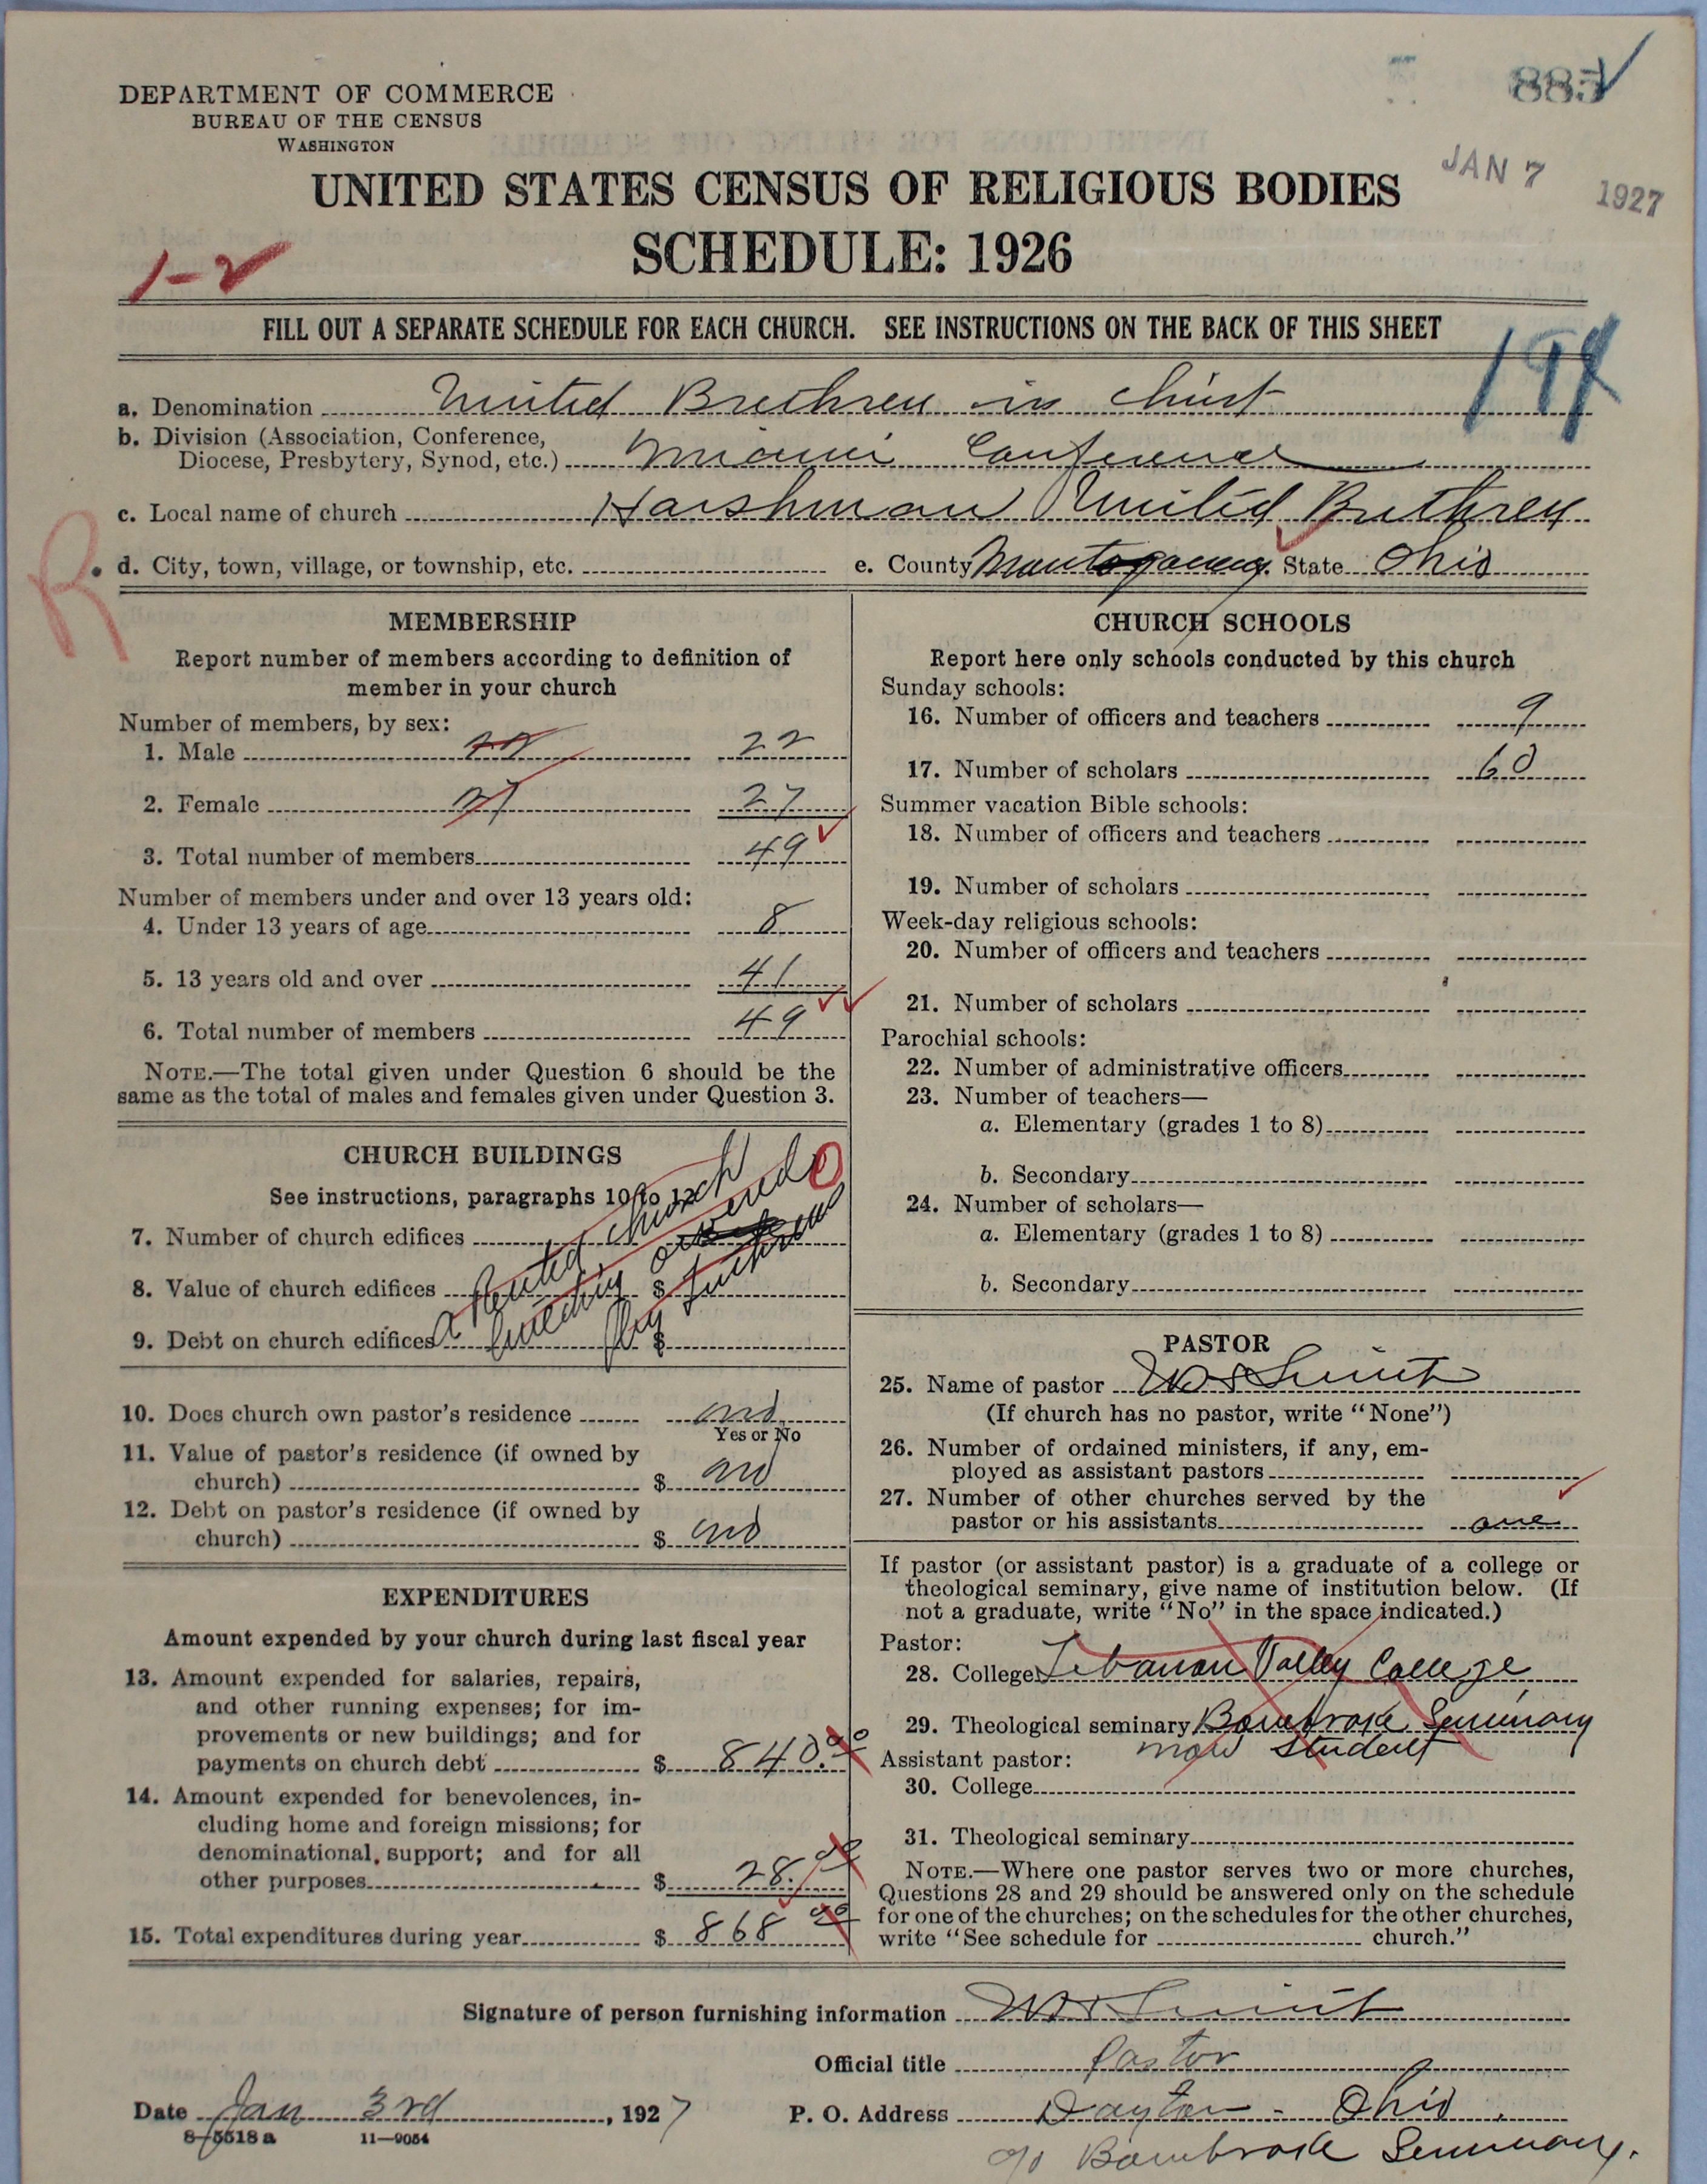 DEPARTMENT OF COMMERCE
BUREAU OF THE CENSUS
WASHINGTON
885
JAN 7 1927
UNITED STATES CENSUS OF RELIGIOUS BODIES
SCHEDULE: 1926
1-2
FILL OUT A SEPARATE SCHEDULE FOR EACH CHURCH. SEE INSTRUCTIONS ON THE BACK OF THIS SHEET
a. Denomination United Brethren in Christ
b. Division (Association, Conference,
Diocese, Presbytery, Synod, etc.) Miami Conference
c. Local name of church Harshman United Brethren
R
d. City, town, village, or township, etc. e. County Montgomery. State Ohio
MEMBERSHIP
Report number of members according to definition of
member in your church
Number of members, by sex:
1. Male 22 22
2. Female 27 27
3. Total number of members 49
Number of members under and over 13 years old:
4. Under 13 years of age 8
5. 13 years old and over 41
6. Total number of members 49
NOTE.—The total given under Question 6 should be the
same as the total of males and females given under Question 3.
CHURCH BUILDINGS
See instructions, paragraphs 10 to 12
0
7. Number of church edifices
8. Value of church edifices $
9. Debt on church edifices $
a Rented church
building owned
by Lutheran
10. Does church own pastor's residence no
Yes or No
11. Value of pastor's residence (if owned by
church) $ no
12. Debt on pastor's residence (if owned by
church) $ no
EXPENDITURES
Amount expended by your church during last fiscal year
13. Amount expended for salaries, repairs,
and other running expenses; for im-
provements or new buildings; and for
payments on church debt $ 840.00
14. Amount expended for benevolences, in-
cluding home and foreign missions; for
denominational support; and for all
other purposes $ 28.00
15. Total expenditures during year $ 868 00
CHURCH SCHOOLS
Report here only schools conducted by this church
Sunday schools:
16. Number of officers and teachers 9
17. Number of scholars 60
Summer vacation Bible schools:
18. Number of officers and teachers
19. Number of scholars
Week-day religious schools:
20. Number of officers and teachers
21. Number of scholars
Parochial schools:
22. Number of administrative officers
23. Number of teachers—
a. Elementary (grades 1 to 8)
b. Secondary
24. Number of scholars—
a. Elementary (grades 1 to 8)
b. Secondary
PASTOR
25. Name of pastor
(If church has no pastor, write "None")
26. Number of ordained ministers, if any, em-
ployed as assistant pastors
27. Number of other churches served by the
pastor or his assistants one
If pastor (or assistant pastor) is a graduate of a college or
theological seminary, give name of institution below. (If
not a graduate, write "No" in the space indicated.)
Pastor:
28. College Lebanon Valley College
29. Theological seminary Bonebrake Seminary
now student
Assistant pastor:
30. College
31. Theological seminary
NOTE.—Where one pastor serves two or more churches,
Questions 28 and 29 should be answered only on the schedule
for one of the churches; on the schedules for the other churches,
write "See schedule for church."
Signature of person furnishing information
Official title Pastor
Date Jan 3rd, 1927 P. O. Address Dayton - Ohio.
8-5518a 11-9054
c/o Bonebrake Seminary.